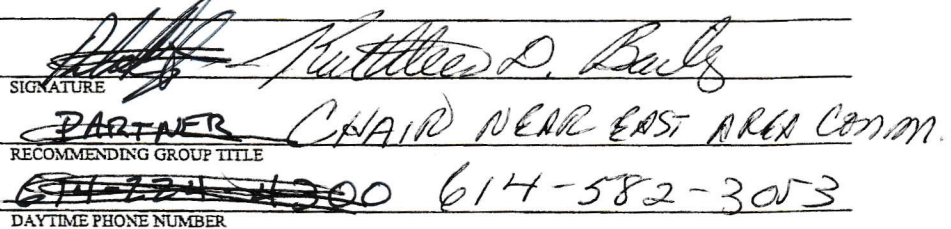 Kathleen D. Baily
SIGNATURE
PARTNER CHAIR NEAR EAST AREA COMM.
RECOMMENDING GROUP TITLE
614-224-4300 614-582-3053
DAYTIME PHONE NUMBER